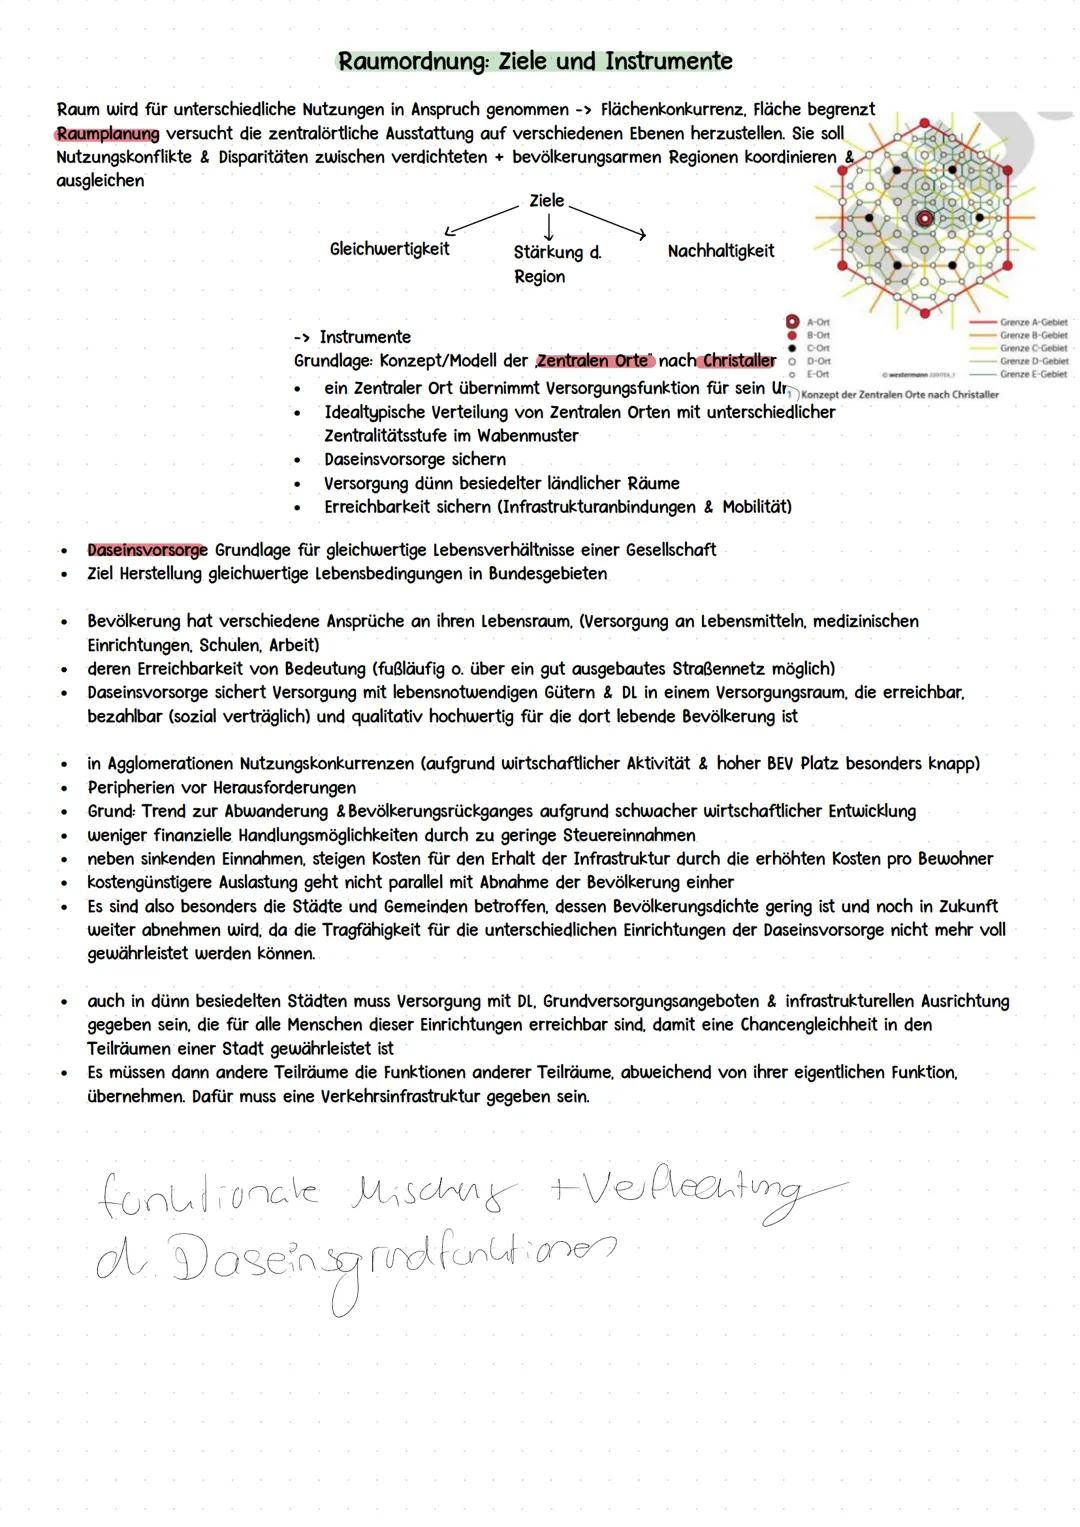 Raumordnung: Ziele und Instrumente
Raum wird für unterschiedliche Nutzungen in Anspruch genommen -> Flächenkonkurrenz, Fläche begrenzt
Raumplanung versucht die zentralörtliche Ausstattung auf verschiedenen Ebenen herzustellen. Sie soll
Nutzungskonflikte & Disparitäten zwischen verdichteten + bevölkerungsarmen Regionen koordinieren &
ausgleichen
Ziele
Gleichwertigkeit
Stärkung d.
Region
Nachhaltigkeit
A-Ort
B-Ort
C-Ort
D-Ort
E-Ort
© westermann
Grenze A-Gebiet
Grenze B-Gebiet
Grenze C-Gebiet
Grenze D-Gebiet
Grenze E-Gebiet
1 Konzept der Zentralen Orte nach Christaller
-> Instrumente
Grundlage: Konzept/Modell der „Zentralen Orte" nach Christaller
• ein Zentraler Ort übernimmt Versorgungsfunktion für sein
• Idealtypische Verteilung von Zentralen Orten mit unterschiedlicher
Zentralitätsstufe im Wabenmuster
• Daseinsvorsorge sichern
• Versorgung dünn besiedelter ländlicher Räume
• Erreichbarkeit sichern (Infrastrukturanbindungen & Mobilität)
• Daseinsvorsorge Grundlage für gleichwertige Lebensverhältnisse einer Gesellschaft
• Ziel Herstellung gleichwertige Lebensbedingungen in Bundesgebieten
• Bevölkerung hat verschiedene Ansprüche an ihren Lebensraum, (Versorgung an Lebensmitteln, medizinischen
Einrichtungen, Schulen, Arbeit)
• deren Erreichbarkeit von Bedeutung (fußläufig o. über ein gut ausgebautes Straßennetz möglich)
• Daseinsvorsorge sichert Versorgung mit lebensnotwendigen Gütern & DL in einem Versorgungsraum, die erreichbar,
bezahlbar (sozial verträglich) und qualitativ hochwertig für die dort lebende Bevölkerung ist
• in Agglomerationen Nutzungskonkurrenzen (aufgrund wirtschaftlicher Aktivität & hoher BEV Platz besonders knapp)
• Peripherien vor Herausforderungen
• Grund: Trend zur Abwanderung & Bevölkerungsrückganges aufgrund schwacher wirtschaftlicher Entwicklung
• weniger finanzielle Handlungsmöglichkeiten durch zu geringe Steuereinnahmen
• neben sinkenden Einnahmen, steigen Kosten für den Erhalt der Infrastruktur durch die erhöhten Kosten pro Bewohner
• kostengünstigere Auslastung geht nicht parallel mit Abnahme der Bevölkerung einher
• Es sind also besonders die Städte und Gemeinden betroffen, dessen Bevölkerungsdichte gering ist und noch in Zukunft
weiter abnehmen wird, da die Tragfähigkeit für die unterschiedlichen Einrichtungen der Daseinsvorsorge nicht mehr voll
gewährleistet werden können.
• auch in dünn besiedelten Städten muss Versorgung mit DL, Grundversorgungsangeboten & infrastrukturellen Ausrichtung
gegeben sein, die für alle Menschen dieser Einrichtungen erreichbar sind, damit eine Chancengleichheit in den
Teilräumen einer Stadt gewährleistet ist
• Es müssen dann andere Teilräume die Funktionen anderer Teilräume, abweichend von ihrer eigentlichen Funktion,
übernehmen. Dafür muss eine Verkehrsinfrastruktur gegeben sein.
funktionale Mischung + Verflechtung
d. Daseinsgrundfunktionen